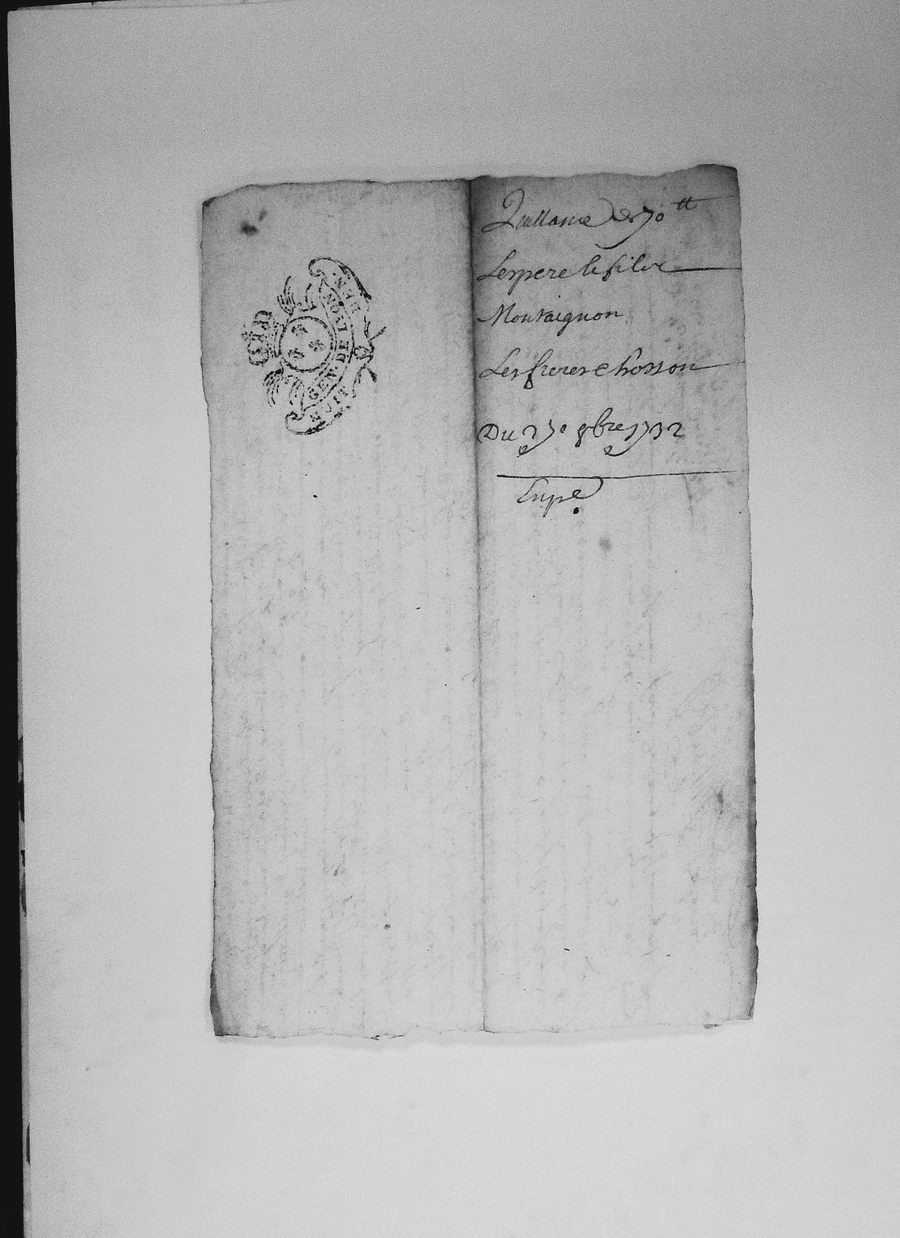 GEN DE
Quittance de 70 tt
Les pere le fils
Montaignon
Les freres Chosson
Du 27e 9bre 1732